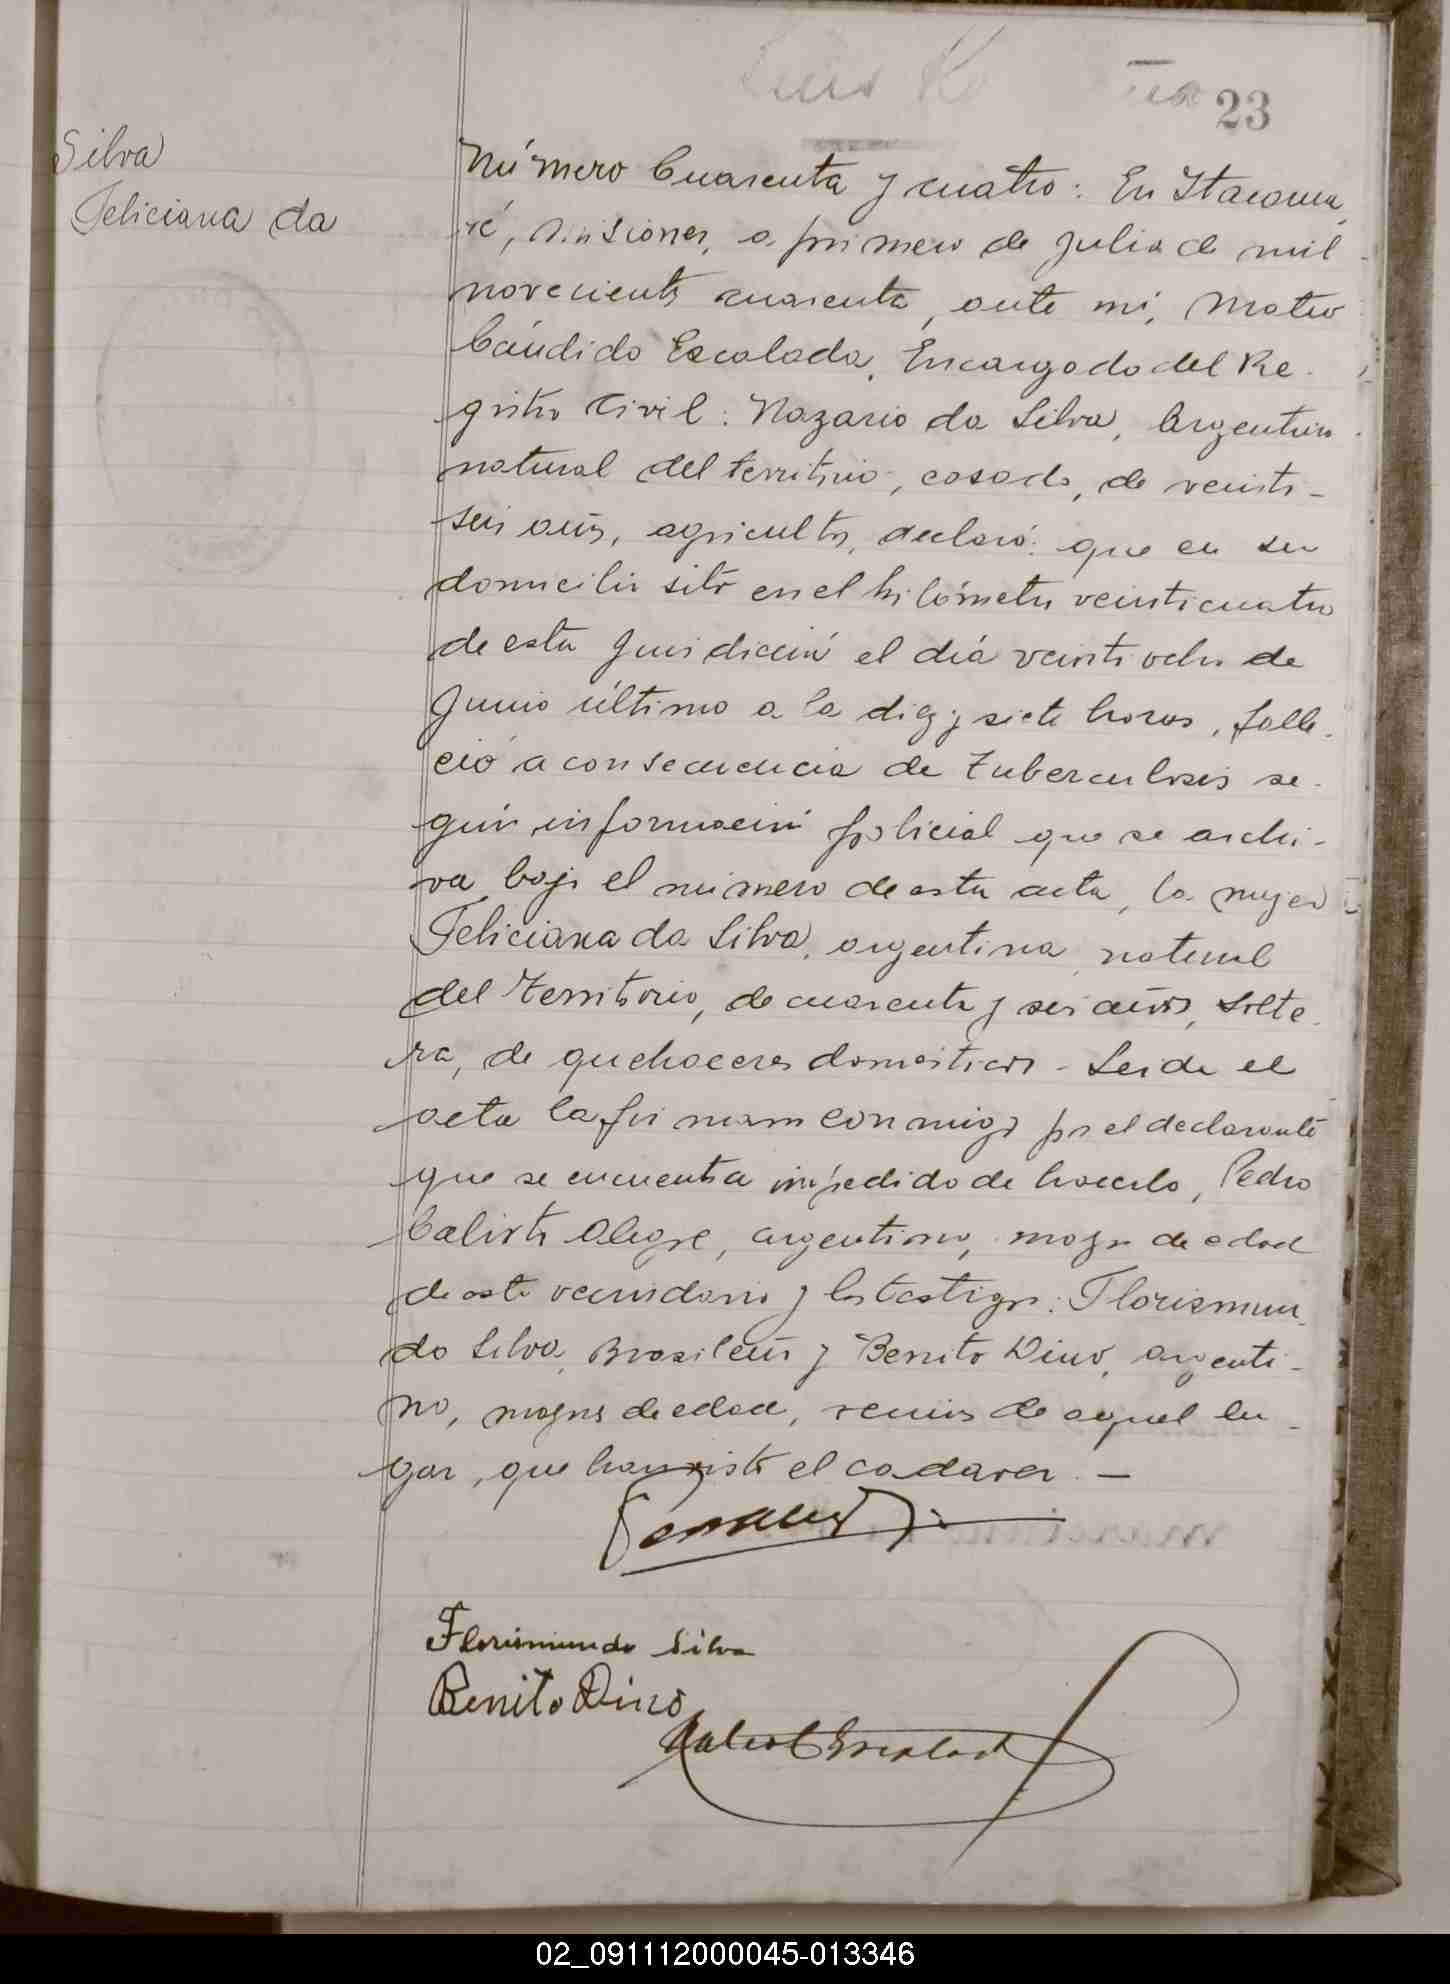 23
Silva
Feliciana da
Número Cuarenta y cuatro: En Itacarua
ré, Misiones, a primero de Julio de mil
novecientos cuarenta, ante mí, Mateo
Cándido Escalada, Encargado del Re-
gistro Civil: Nazario da Silva, Argentino
natural del territorio, casado, de veinti-
seis años, agricultor, declaró: que en su
domicilio sito en el kilómetro veinticuatro
de esta Jurisdicción el día veintiocho de
Junio último a la diez y siete horas, falle-
ció a consecuencia de Tuberculosis se-
gún información policial que se archi-
va bajo el número de esta acta, la mujer
Feliciana da Silva, argentina, natural
del Territorio, de cuarenta y seis años, Solte-
ra, de quehaceres domésticos - Leida el
acta la firmam conmigo por el declarante
que se encuentra impedido de hacerlo, Pedro
Calixto Alegre, argentino, mayor de edad
de este vecindario y los testigos: Florismun-
do Silva, Brasileño y Benito Dino, argenti-
no, mayores de edad, vecinos de aquel lu-
gar, que han visto el cadaver. —
Florismundo Silva
Benito Dino
Mateo C Escalada
02_091112000045-013346